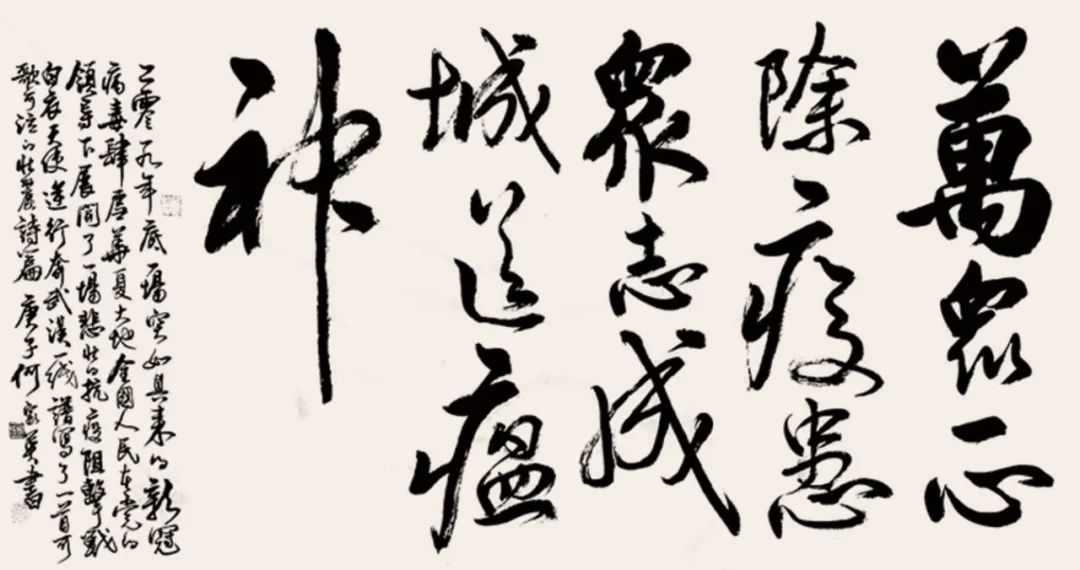 萬眾一心
除疫患
眾志成
城送瘟
神
二零一九年底一場突如其来的新冠
病毒肆虐華夏大地全國人民在党的
領導下展開了一場悲壮的抗疫阻擊戰
白衣天使逆行奔武漢一线譜寫了一首可
歌可泣的壮麗詩篇 庚子何家英書